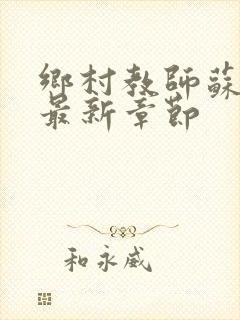 鄉村教師蘇
最新章節
和永威